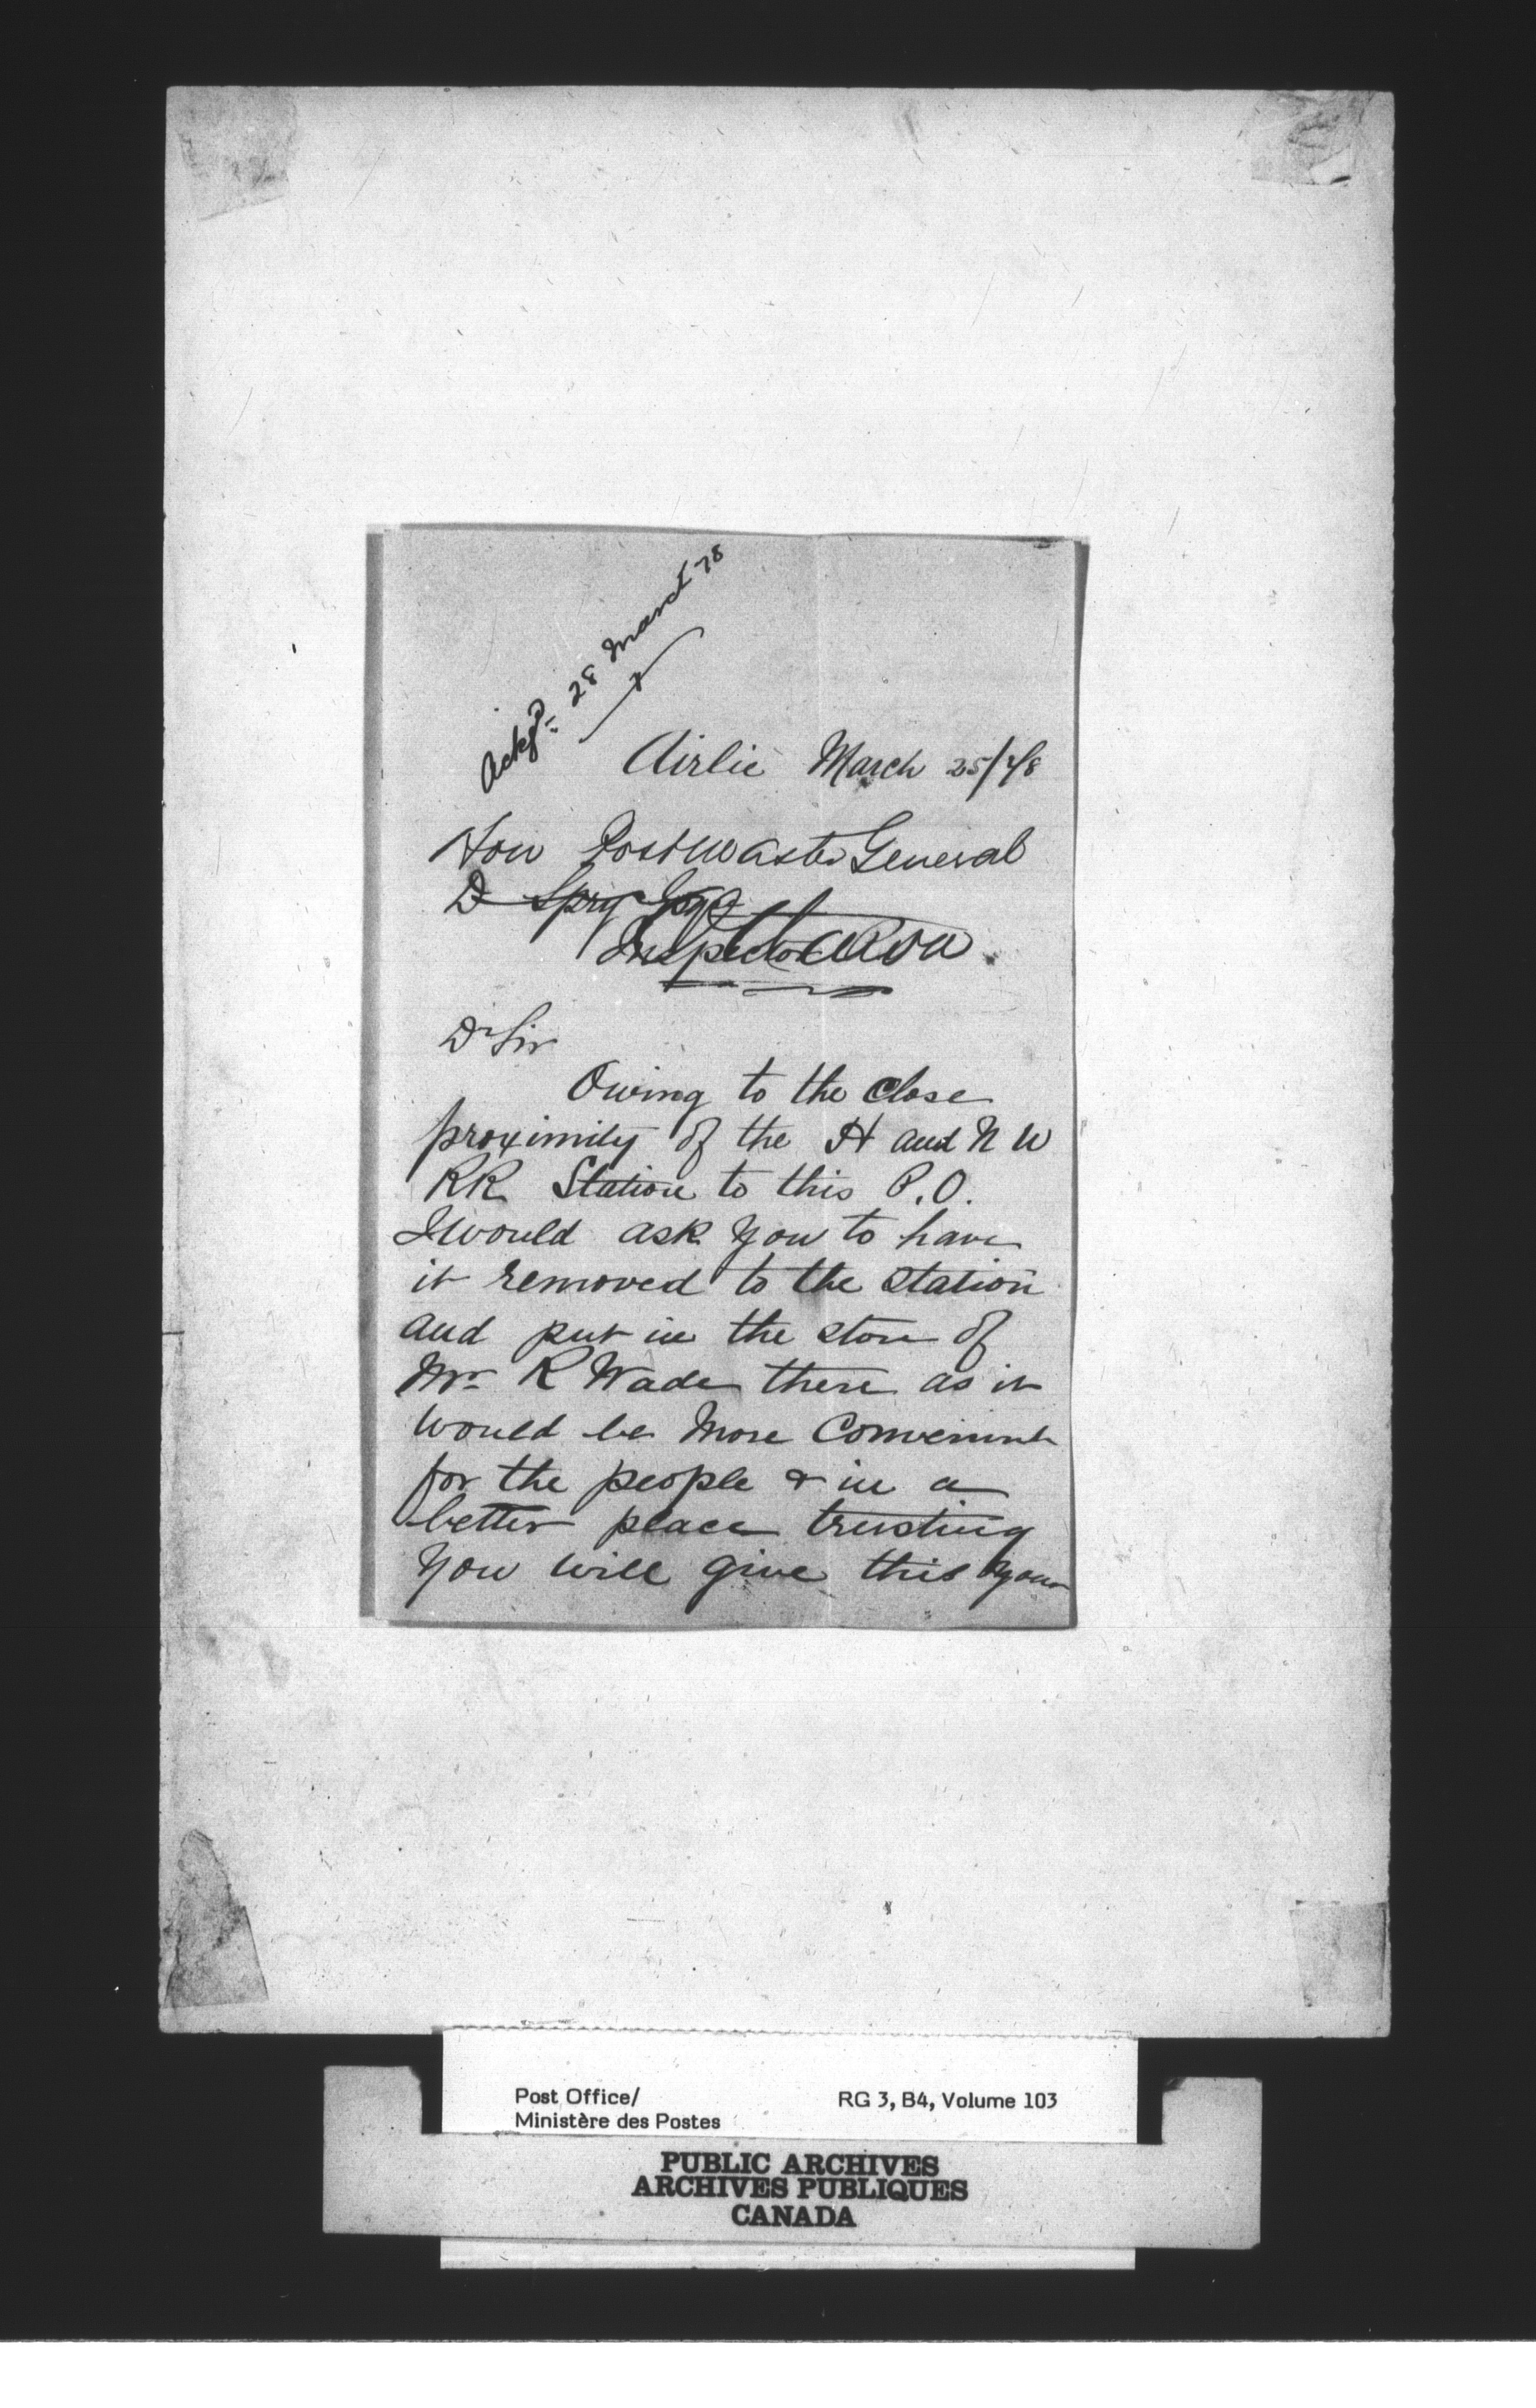 Ackgd 28 March 78
Airlie March 25/78
Hon Postmaster General
D Spry Esqr
Inspector Ottawa.
Dr Sir
Owing to the close
proximity of the H and N W
RR Station to this P.O.
I would ask you to have
it removed to the station
and put in the store of
Mr R Wade there as it
would be More Convenient
for the people & in a
better place trusting
you will give this your
Post Office/
Ministère des Postes
RG 3, B4, Volume 103
PUBLIC ARCHIVES
ARCHIVES PUBLIQUES
CANADA